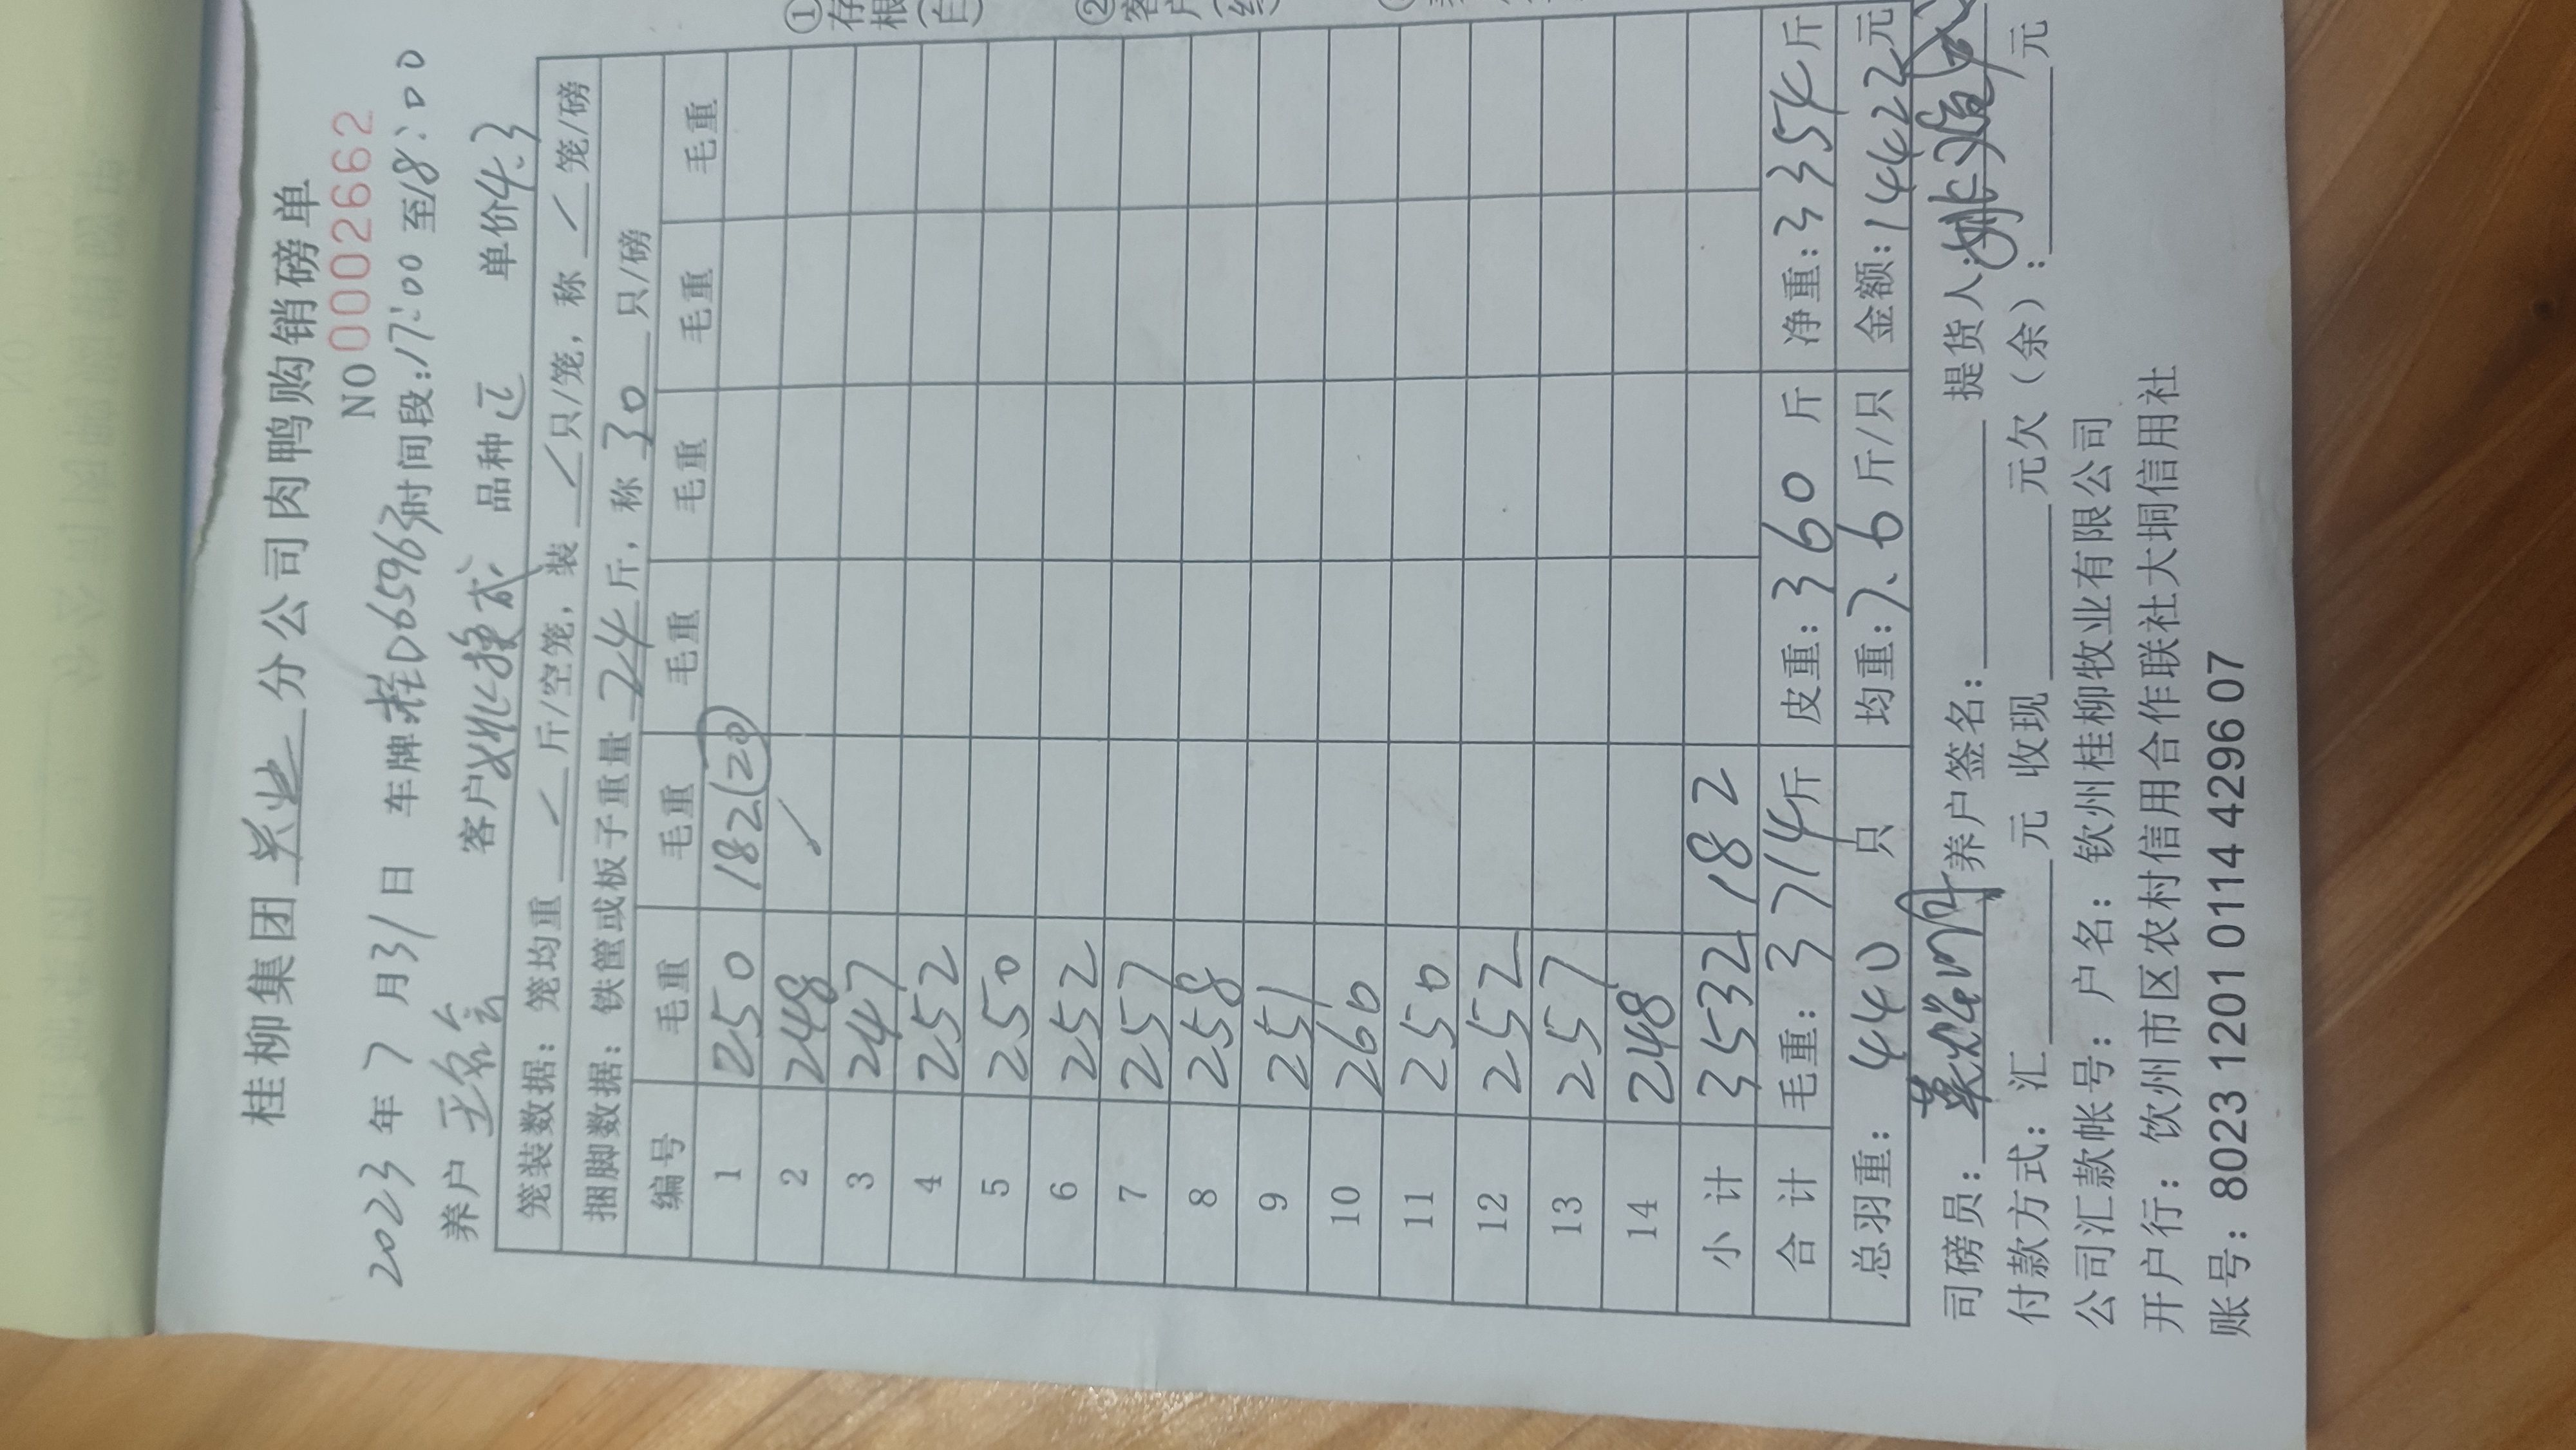 桂柳集团 兴业 分公司肉鸭购销磅单
NO 0002662
2023 年 7 月 31 日 车牌 桂D65963 时间段: 17:00 至 18:00
养户 客户 品种 单价 4.3
笼装数据: 笼均重 / 斤/空笼, 装 / 只/笼, 称 / 笼/磅
捆脚数据: 铁筐或板子重量 24 斤, 称 30 只/磅
编号 毛重 毛重 毛重 毛重 毛重 毛重
1 250 182(20)
2 248 /
3 247
4 252
5 250
6 252
7 257
8 258
9 251
10 260
11 250
12 252
13 257
14 248
小计 3532 182
合计 毛重: 3714 斤 皮重: 360 斤 净重: 3354 斤
总羽重: 440 只 均重: 7.6 斤/只 金额: 14422 元
司磅员: 养户签名: 提货人:
付款方式: 汇 元 收现 元欠(余): 元
公司汇款帐号: 户名: 钦州桂柳牧业有限公司
开户行: 钦州市区农村信用合作联社大垌信用社
账号: 8023 1201 0114 4296 07
①存根(白)
②客户(红)